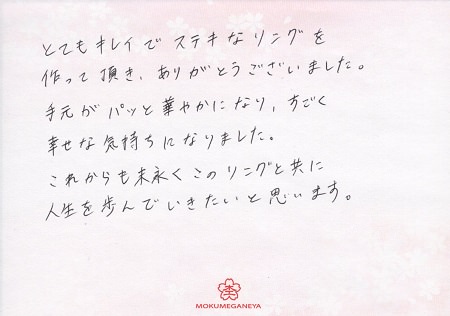 とてもキレイでステキなリングを
作って頂き、ありがとうございました。
手元がパッと華やかになり、すごく
幸せな気持ちになりました。
これからも末永くこのリングと共に
人生を歩んでいきたいと思います。
MOKUMEGANEYA